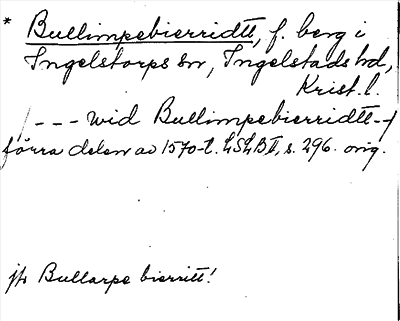 * Bullimpebierridtt, f. berg i
Ingelstorps sn, Ingelstads hd,
Krist. l.
/--- wid Bullimpebierridtt--/
förra delen av 1570-t. LSLB II, s. 296. orig.
jfr Bullarpe bierritt!